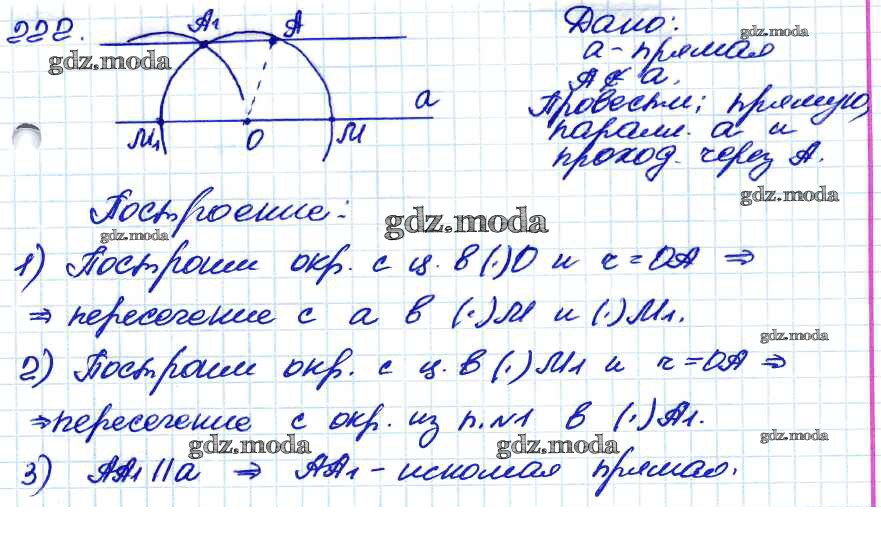 222.
A₁ A
a
M₁ O M
Дано:
a - прямая
A ∉ a.
Провести: прямую,
паралл. a и
проход. через A.
Построение:
1) Построим окр. с ц. в (·)O и r = OA ⇒
⇒ пересечение с a в (·)M и (·)M₁.
2) Построим окр. с ц. в (·)M₁ и r = OA ⇒
⇒ пересечение с окр. из п.№1 в (·)A₁.
3) AA₁ || a ⇒ AA₁ - искомая прямая.
gdz.moda
gdz.moda
gdz.moda
gdz.moda
gdz.moda
gdz.moda
gdz.moda
gdz.moda
gdz.moda